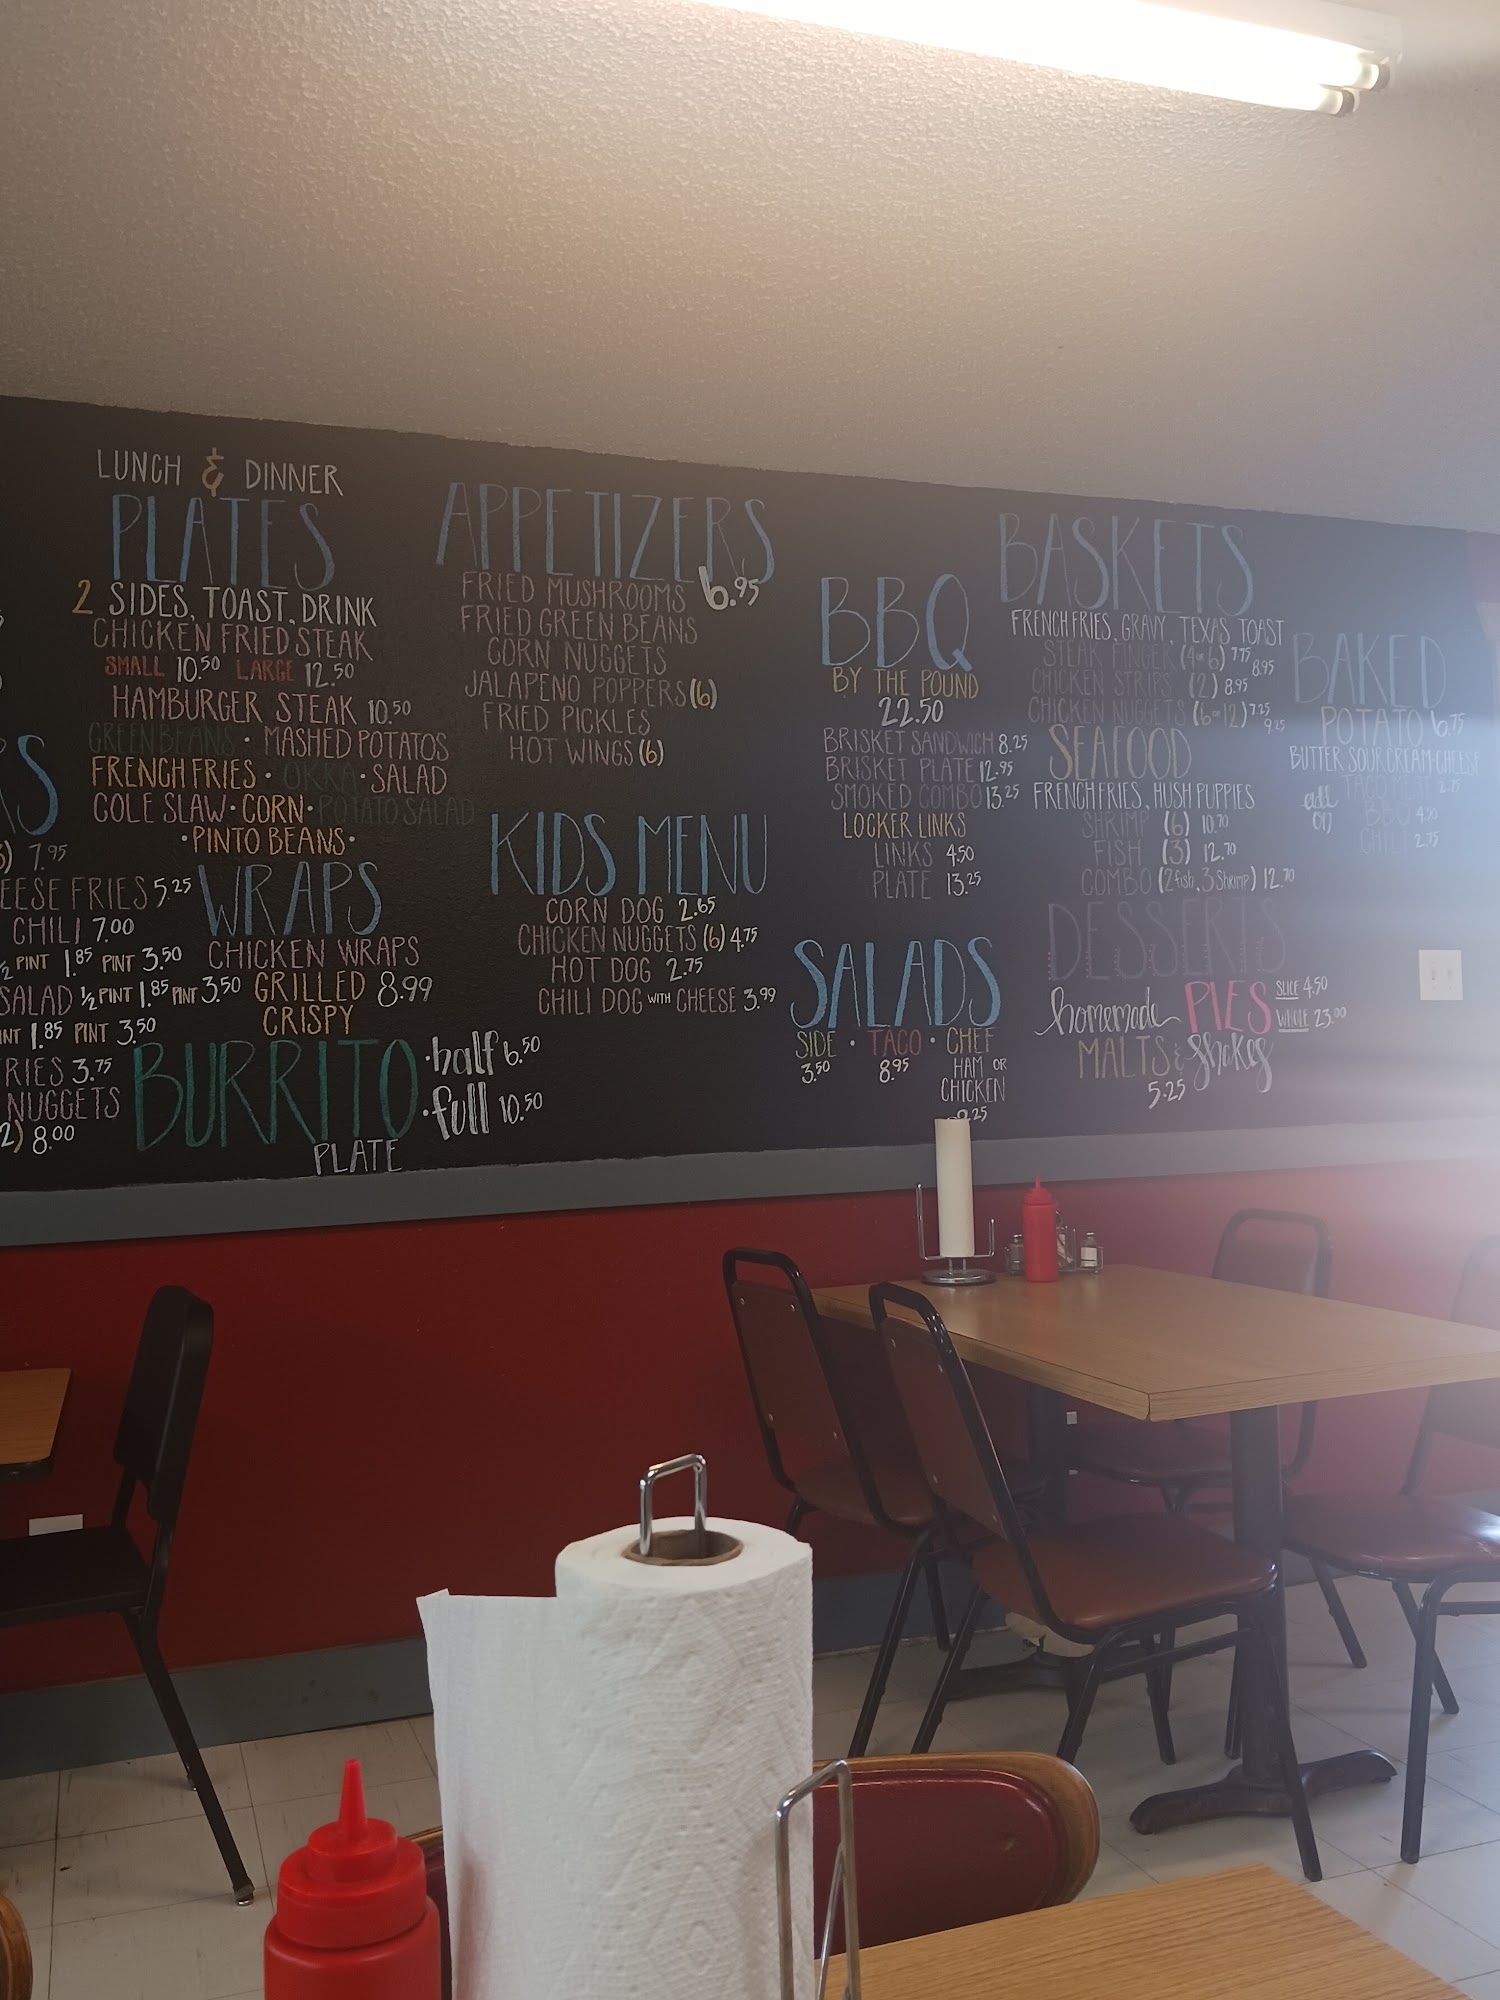 LUNCH & DINNER
PLATES
2 SIDES, TOAST, DRINK
CHICKEN FRIED STEAK
SMALL 10.50 LARGE 12.50
HAMBURGER STEAK 10.50
GREENBEANS · MASHED POTATOS
FRENCH FRIES · OKRA · SALAD
COLE SLAW · CORN · POTATO SALAD
· PINTO BEANS ·
RS
7.95
EESE FRIES 5.25
CHILI 7.00
½ PINT 1.85 PINT 3.50
SALAD ½ PINT 1.85 PINT 3.50
INT 1.85 PINT 3.50
RIES 3.75
NUGGETS
2) 8.00
WRAPS
CHICKEN WRAPS
GRILLED 8.99
CRISPY
BURRITO
PLATE
· half 6.50
· full 10.50
APPETIZERS
6.95
FRIED MUSHROOMS
FRIED GREEN BEANS
CORN NUGGETS
JALAPENO POPPERS (6)
FRIED PICKLES
HOT WINGS (6)
KIDS MENU
CORN DOG 2.65
CHICKEN NUGGETS (6) 4.75
HOT DOG 2.75
CHILI DOG WITH CHEESE 3.99
BBQ
BY THE POUND
22.50
BRISKET SANDWICH 8.25
BRISKET PLATE 12.95
SMOKED COMBO 13.25
LOCKER LINKS
LINKS 4.50
PLATE 13.25
SALADS
SIDE · TACO · CHEF
3.50 8.95 HAM OR
CHICKEN
BASKETS
FRENCH FRIES, GRAVY, TEXAS TOAST
STEAK FINGER (4 or 6) 7.75 8.95
CHICKEN STRIPS (2) 8.95
CHICKEN NUGGETS (6 or 12) 7.25 9.25
SEAFOOD
FRENCH FRIES, HUSH PUPPIES
SHRIMP (6) 10.70
FISH (3) 12.70
COMBO (2 fish, 3 Shrimp) 12.70
DESSERTS
homemade PIES SLICE 4.50
WHOLE 23.00
MALTS & Shakes
5.25
BAKED
POTATO 6.75
BUTTER SOUR CREAM · CHEESE
add on
TACO MEAT 2.75
BBQ 4.50
CHILI 2.75